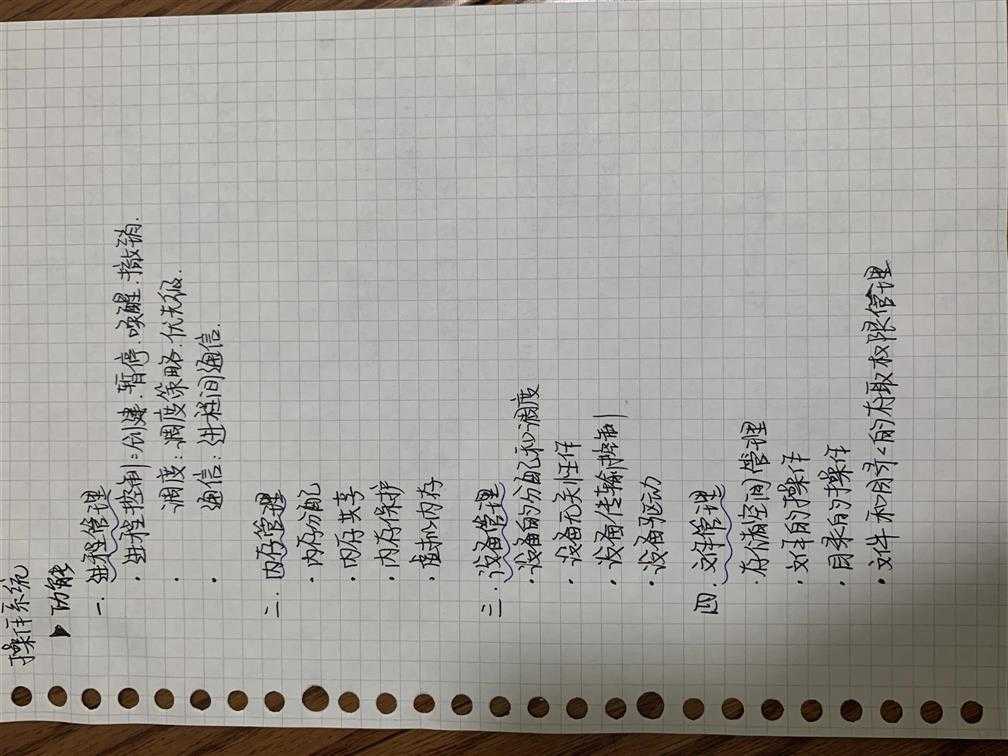 操作系统
▶ 功能
一. 进程管理
· 进程控制:创建.暂停.唤醒.撤销.
· 调度:调度策略.优先级.
· 通信:进程间通信.
二. 内存管理
· 内存分配
· 内存共享
· 内存保护
· 虚拟内存
三. 设备管理
· 设备的分配和调度
· 设备无关性
· 设备传输控制
· 设备驱动
四. 文件管理
· 存储空间管理
· 文件的操作
· 目录的操作
· 文件和目录的存取权限管理